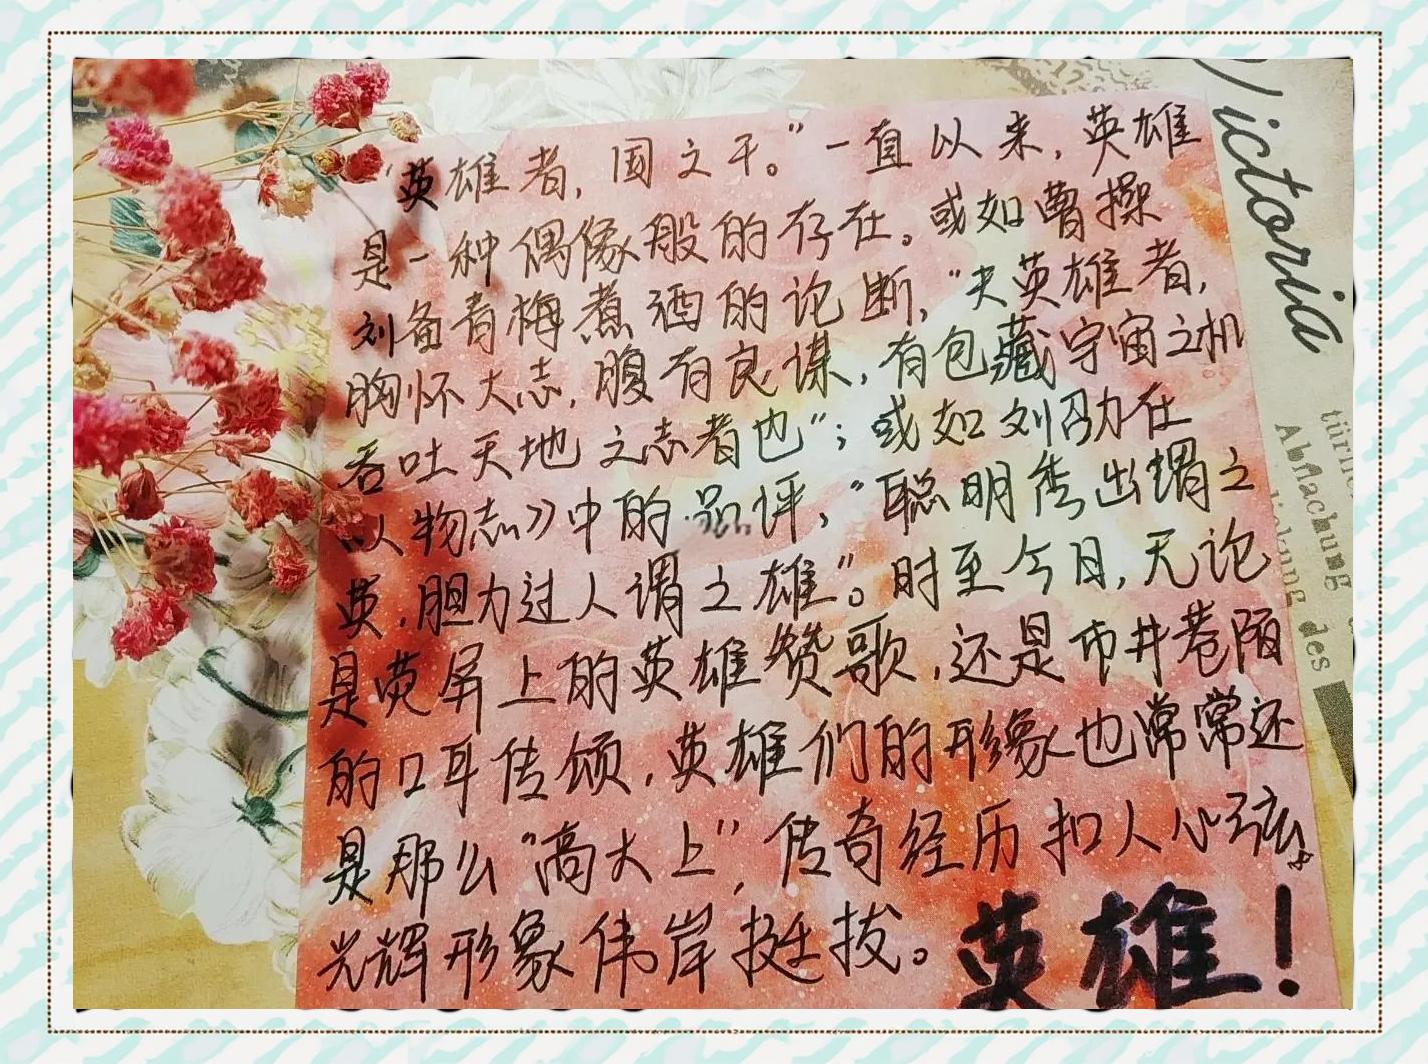 “英雄者，国之干。”一直以来，英雄
是一种偶像般的存在。或如曹操
刘备青梅煮酒的论断，“夫英雄者，
胸怀大志，腹有良谋，有包藏宇宙之机
吞吐天地之志者也”；或如刘劭在
《人物志》中的品评，“聪明秀出谓之
英，胆力过人谓之雄”。时至今日，无论
是荧屏上的英雄赞歌，还是市井巷陌
的口耳传颂，英雄们的形象也常常还
是那么“高大上”，传奇经历扣人心弦，
光辉形象伟岸挺拔。
英雄！
Victoria
Abflachung
des